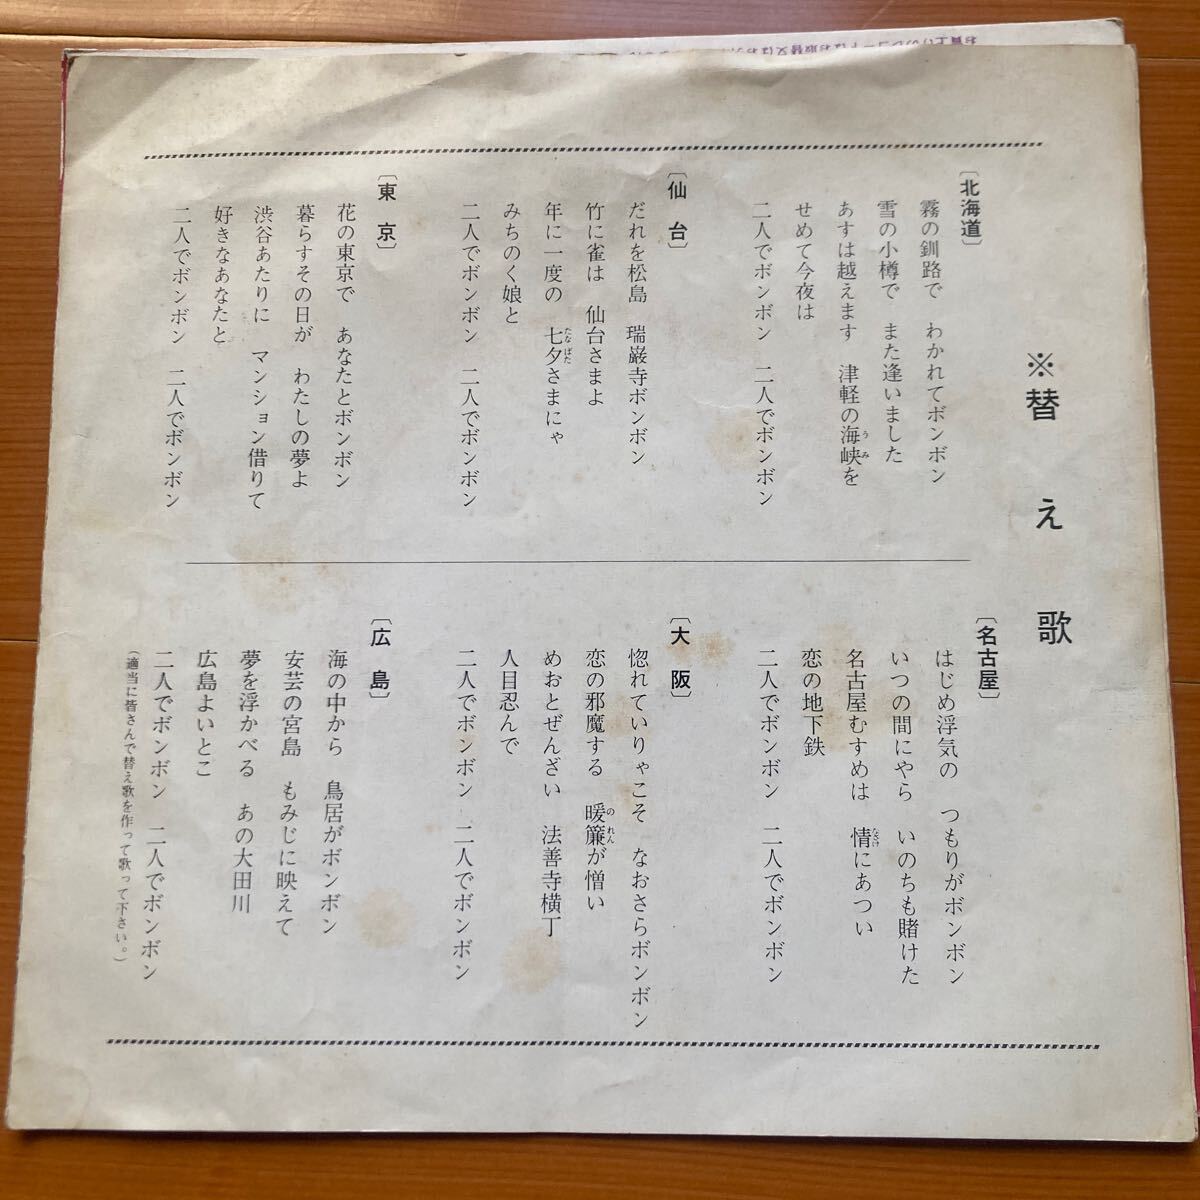 ※替え歌
〔北海道〕
霧の釧路で　わかれてボンボン
雪の小樽で　また逢いました
あすは越えます　津軽の海峡を
うみ
せめて今夜は
二人でボンボン　二人でボンボン
〔仙台〕
だれを松島　瑞巌寺ボンボン
竹に雀は　仙台さまよ
年に一度の　七夕さまにゃ
たなばた
みちのく娘と
二人でボンボン　二人でボンボン
〔東京〕
花の東京で　あなたとボンボン
暮らすその日が　わたしの夢よ
渋谷あたりに　マンション借りて
好きなあなたと
二人でボンボン　二人でボンボン
〔名古屋〕
はじめ浮気の　つもりがボンボン
いつの間にやら　いのちも賭けた
名古屋むすめは　情にあつい
なさけ
恋の地下鉄
二人でボンボン　二人でボンボン
〔大阪〕
惚れていりゃこそ　なおさらボンボン
恋の邪魔する　暖簾が憎い
のれん
めおとぜんざい　法善寺横丁
人目忍んで
二人でボンボン　二人でボンボン
〔広島〕
海の中から　鳥居がボンボン
安芸の宮島　もみじに映えて
夢を浮かべる　あの大田川
広島よいとこ
二人でボンボン　二人でボンボン
（適当に皆さんで替え歌を作って歌って下さい。）